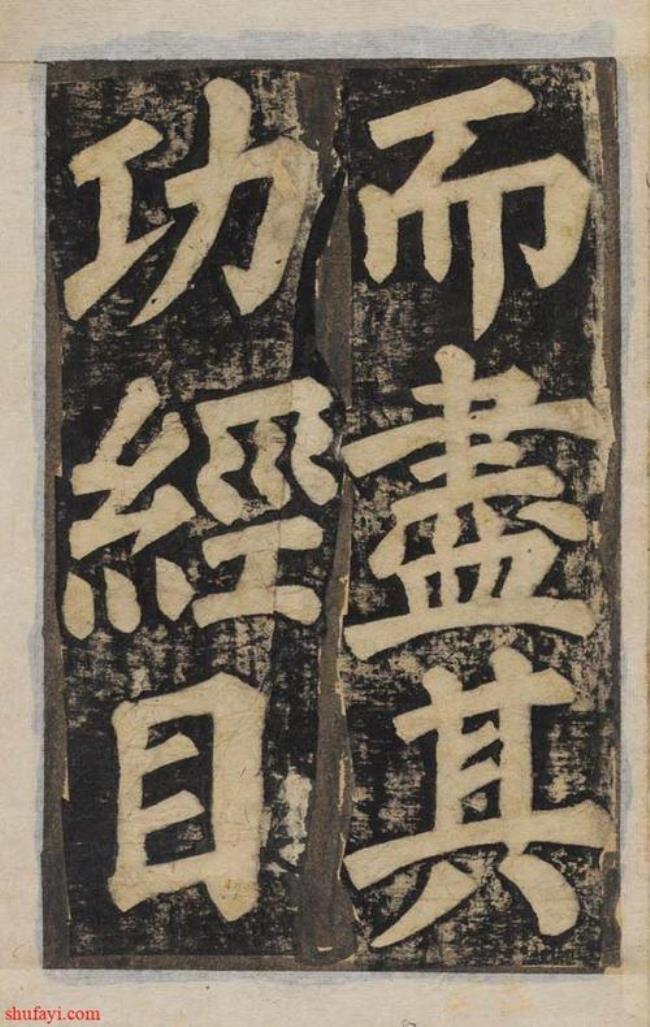 而盡其
功經目
shufayi.com